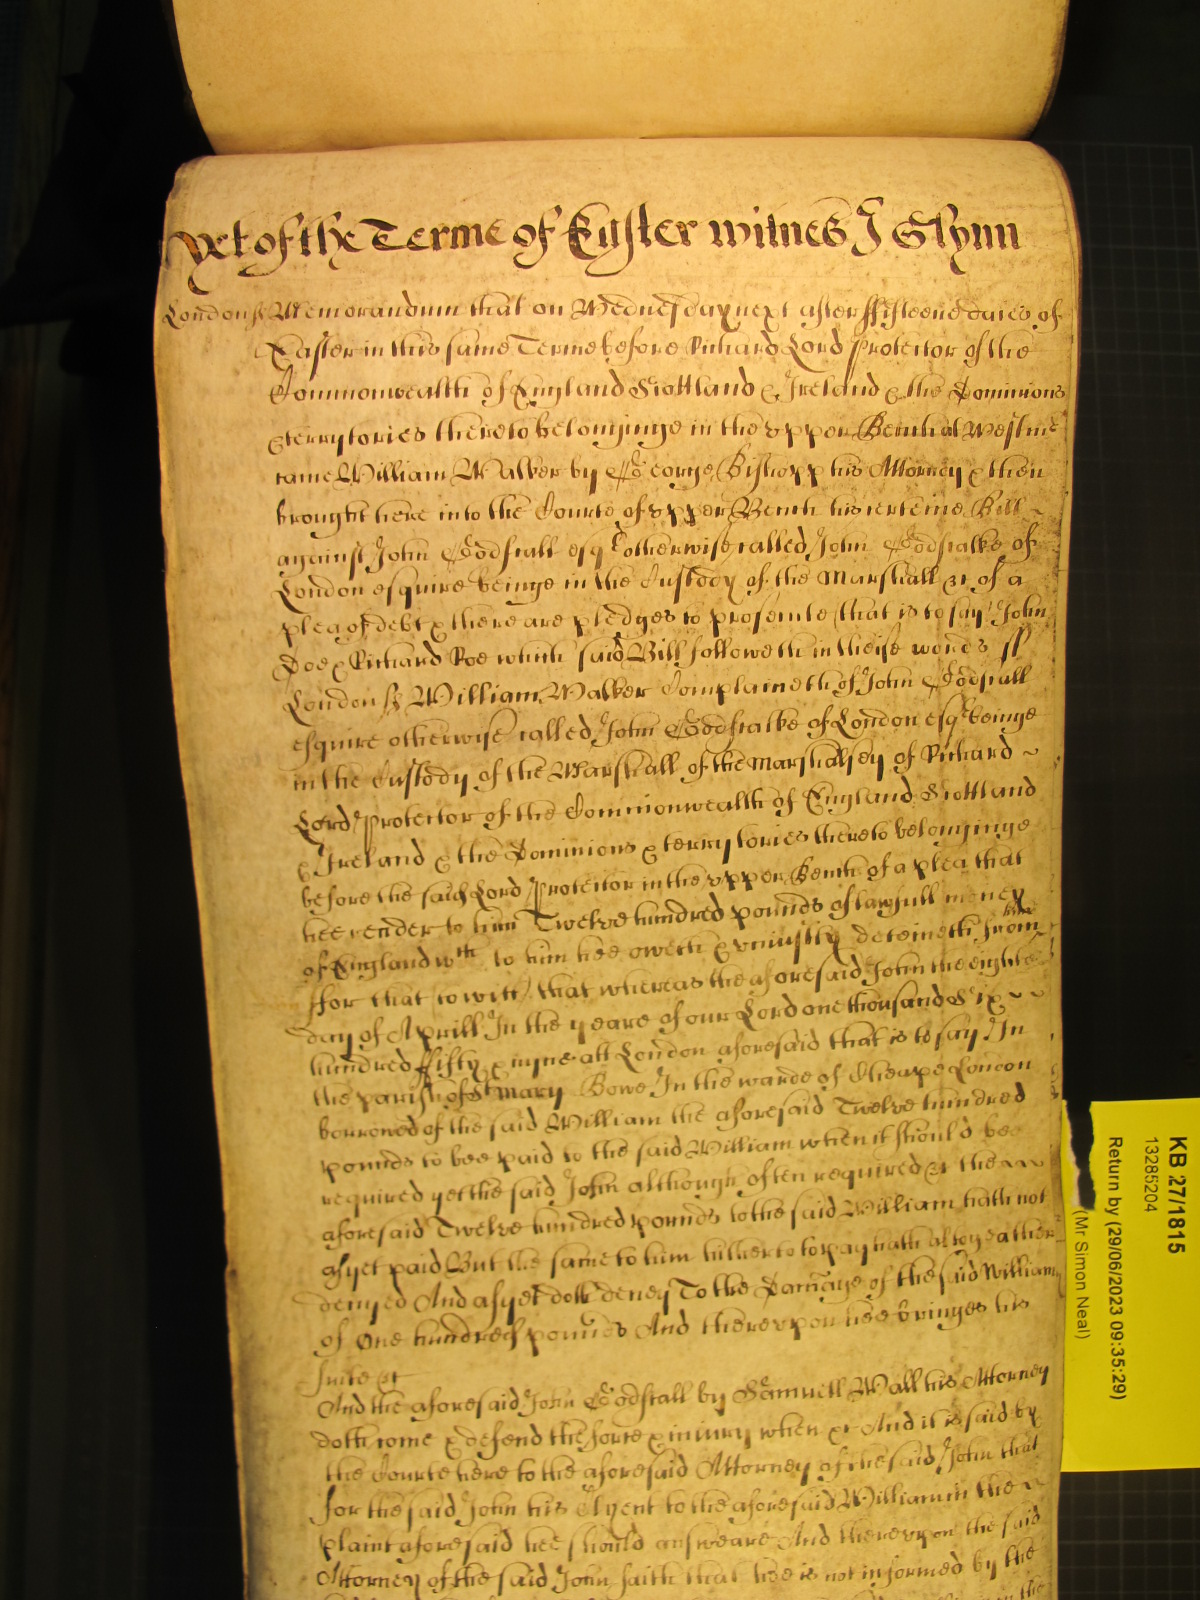 Yet of the Terme of Easter witnes J Glynn
London ss Memorandum that on Wednesday next after ffifteene daies of
Easter in this same Terme before Richard Lord Protector of the
Commonwealth of England Scottland & Ireland & the Dominions
& terrytories thereto belonginge in the upper Bench at Westmr
came William Walker by George Bishopp his Attorney & then
brought here into the Courte of upper Bench his certeine Bill
against John Godscall esqr otherwise called John Godscalke of
London esquire beinge in the Custody of the Marshall &c of a
plea of debt & there are pledges to prosecute that is to say John
Doe & Richard Roe which said Bill followeth in theise words ss
London ss William Walker Complaineth of John Godscall
esquire otherwise called John Godscalke of London esqr beinge
in the Custody of the Marshall of the Marshalsey of Richard
Lord Protector of the Commonwealth of England Scottland
& Ireland & the Dominions & terrytories thereto belonginge
before the said Lord Protector in the upper Bench of a plea that
hee render to him Twelve hundred pounds of lawfull money
of England wth to him hee oweth & uniustly deteineth from him
ffor that (to witt) that whereas the aforesaid John the eight
day of Aprill In the yeare of our Lord one thousand Six
hundred ffifty & nyne att London aforesaid that is to say In
the parish of St Mary Bowe In the warde of Cheape London
borrowed of the said William the aforesaid Twelve hundred
pounds to bee paid to the said William when it should bee
required yet the said John although often required &c the
aforesaid Twelve hundred pounds to the said William hath not
as yet paid But the same to him hitherto to pay hath altogeather
denyed And as yet doth deney To the Damage of the said William
of One hundred pounds And thereupon hee bringes his
suite &c
And the aforesaid John Godscall by Samuell Wall his Attorney
doth come & defend the force & iniury when &c And it is said by
the Courte here to the aforesaid Attorney of the said John that
for the said John his Clyent to the aforesaid William in the
plaint aforesaid hee should answeare And thereupon the said
Attorney of the said John saith that hee is not informed by the
KB 27/1815
13285204
Return by (29/06/2023 09:35:29)
(Mr Simon Neal)